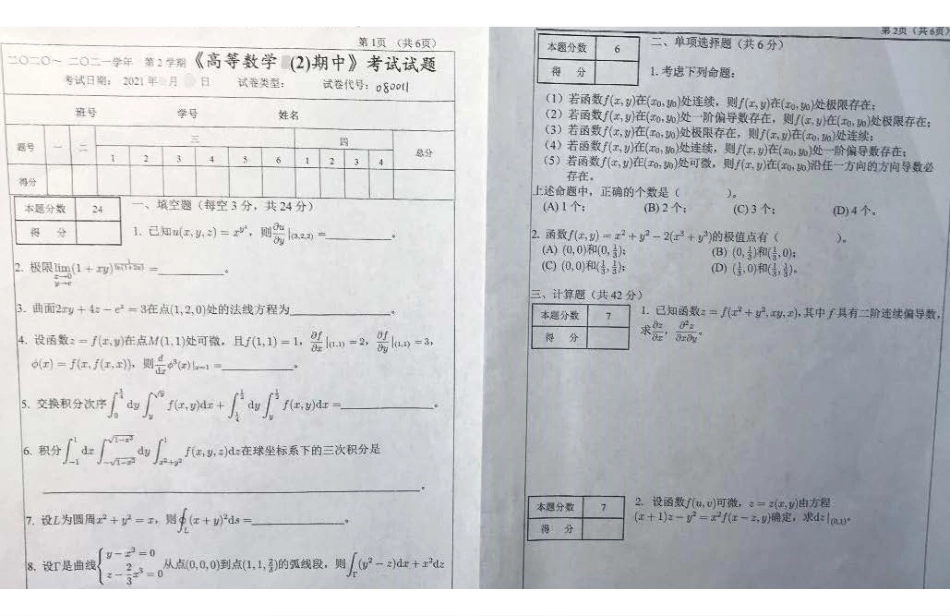 第1页 (共6页)
二○二○～ 二○二一学年 第2学期《高等数学 (2)期中》考试试题
考试日期: 2021年 月 日 试卷类型: 试卷代号: 080011
班号 学号 姓名
题号 一 二 三 四 总分
1 2 3 4 5 6 1 2 3 4
得分
本题分数 24
得 分
一、填空题 (每空3分, 共24分)
1. 已知u(x,y,z) = x^{y^z}, 则∂u/∂y|(3,2,2) = ____。
2. 极限lim_{x→0, y→e}(1 + xy)^{1/ln(1+2x)} = ____。
3. 曲面2xy + 4z − e^z = 3在点(1,2,0)处的法线方程为____。
4. 设函数z = f(x,y)在点M(1,1)处可微, 且f(1,1) = 1, ∂f/∂x|(1,1) = 2, ∂f/∂y|(1,1) = 3,
φ(x) = f(x, f(x,x)), 则d/dx φ³(x)|x=1 = ____。
5. 交换积分次序∫_0^{1/4} dy ∫_y^{√y} f(x,y)dx + ∫_{1/4}^{1/2} dy ∫_y^{1/2} f(x,y)dx = ____。
6. 积分∫_{-1}^{1} dx ∫_{-√(1-x²)}^{√(1-x²)} dy ∫_{x²+y²}^{1} f(x,y,z)dz在球坐标系下的三次积分是
____。
7. 设L为圆周x² + y² = x, 则∮_L (x + y)²ds = ____。
8. 设Γ是曲线{y − x² = 0, z − 2/3 x³ = 0 从点(0,0,0)到点(1,1,2/3)的弧线段, 则∫_Γ (y² − z)dx + x²dz
第2页 (共6页)
本题分数 6
得 分
二、单项选择题 (共6分)
1. 考虑下列命题:
(1) 若函数f(x,y)在(x₀,y₀)处连续, 则f(x,y)在(x₀,y₀)处极限存在;
(2) 若函数f(x,y)在(x₀,y₀)处一阶偏导数存在, 则f(x,y)在(x₀,y₀)处极限存在;
(3) 若函数f(x,y)在(x₀,y₀)处极限存在, 则f(x,y)在(x₀,y₀)处连续;
(4) 若函数f(x,y)在(x₀,y₀)处连续, 则f(x,y)在(x₀,y₀)处一阶偏导数存在;
(5) 若函数f(x,y)在(x₀,y₀)处可微, 则f(x,y)在(x₀,y₀)沿任一方向的方向导数必
存在。
上述命题中, 正确的个数是 ( )。
(A) 1个; (B) 2个; (C) 3个; (D) 4个。
2. 函数f(x,y) = x² + y² − 2(x³ + y³)的极值点有 ( )。
(A) (0,0)和(0,1/3); (B) (0,1/3)和(1/3,0);
(C) (0,0)和(1/3,1/3); (D) (1/3,0)和(1/3,1/3)。
三、计算题 (共42分)
本题分数 7
得 分
1. 已知函数z = f(x² + y², xy, x), 其中f具有二阶连续偏导数,
求∂z/∂x, ∂²z/∂x∂y。
本题分数 7
得 分
2. 设函数f(u,v)可微, z = z(x,y)由方程
(x + 1)z − y² = x²f(x − z, y)确定, 求dz|(0,1)。